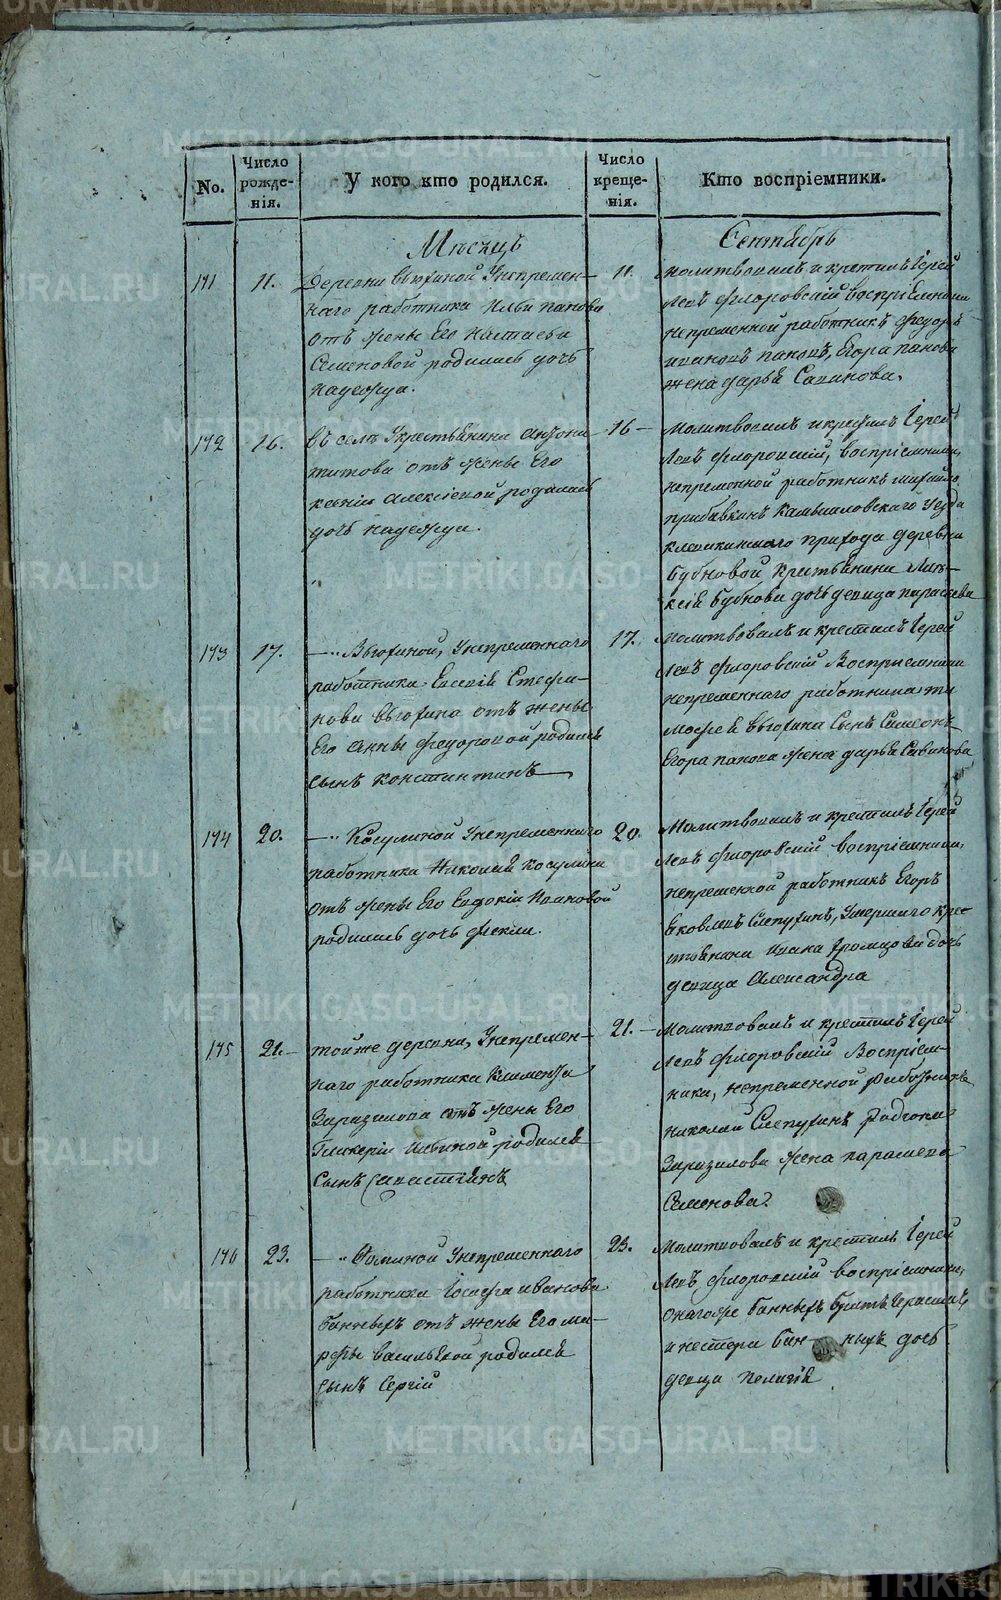 No.
Число рожденія.
У кого кто родился.
Число крещенія.
Кто воспріемники.
Мѣсяцъ
Сентябрь
171
11.
Деревни Вьюхиной Унепремен-
наго работника Ильи Панова
отъ жены Его
Семеновой родилась дочь
Надежда.
11.
Молитвовалъ и крестилъ Іерей
Левъ Флоровскій воспріемники
непременной работникъ Федоръ
Ивановъ Пановъ, Егора Панова
жена Дарья Савинова.
172
16.
Въ селѣ Укрестьянина Антона
Титова отъ жены Его
Ксеніи Алексіевой родилась
дочь Надежда.
16
Молитвовалъ и крестилъ Іерей
Левъ Флоровскій, воспріемники,
непременной работникъ Михайло
Камышловскаго Уезда
прихода деревни
Бубновой, Крестьянина
Бубнова дочь девица Параскева
173
17.
Вьюхиной, Унепременнаго
работника Евсевія Стефа-
нова Вьюхина отъ жены
Его Анны Федоровой родился
сынъ Константинъ
17.
Молитвовалъ и крестилъ Іерей
Левъ Флоровскій Восприемники
непременнаго работника Ти
мофея Вьюхина Сынъ Симеонъ
Егора Панова жена Дарья Савинова
174
20.
Косулиной Унепременнаго
работника Николая Косулина
отъ жены Его Евдокіи Ивановой
родилась дочь Фекла.
20.
Молитвовалъ и крестилъ Іерей
Левъ Флоровскій воспріемники,
непременной работникъ Егоръ
Яковлевъ Слепухинъ, Умершаго кре-
стьянина Ивана дочь
девица Александра
175
21.
тойже деревни, Унепремен-
наго работника Климента
Заразилова отъ жены Его
Гликеріи Ильиной родился
Сынъ Савастіянъ
21.
Молитвовалъ и крестилъ Іерей
Левъ Флоровскій Воспріем-
ники, непременной работникъ
Николай Слепухинъ Родіона
Заразилова жена Парасковья
Семенова.
176
23.
Фоминой Унепременнаго
работника Іосифа Иванова
Банныхъ отъ жены Его Ма-
рфы Васильевой родился
сынъ Сергій
23.
Молитвовалъ и крестилъ Іерей
Левъ Флоровскій воспріемники,
Онагоже Банныхъ братъ Герасимъ,
и Нестера Бан-ныхъ дочь
девица Пелагія
METRIKI.GASO-URAL.RU